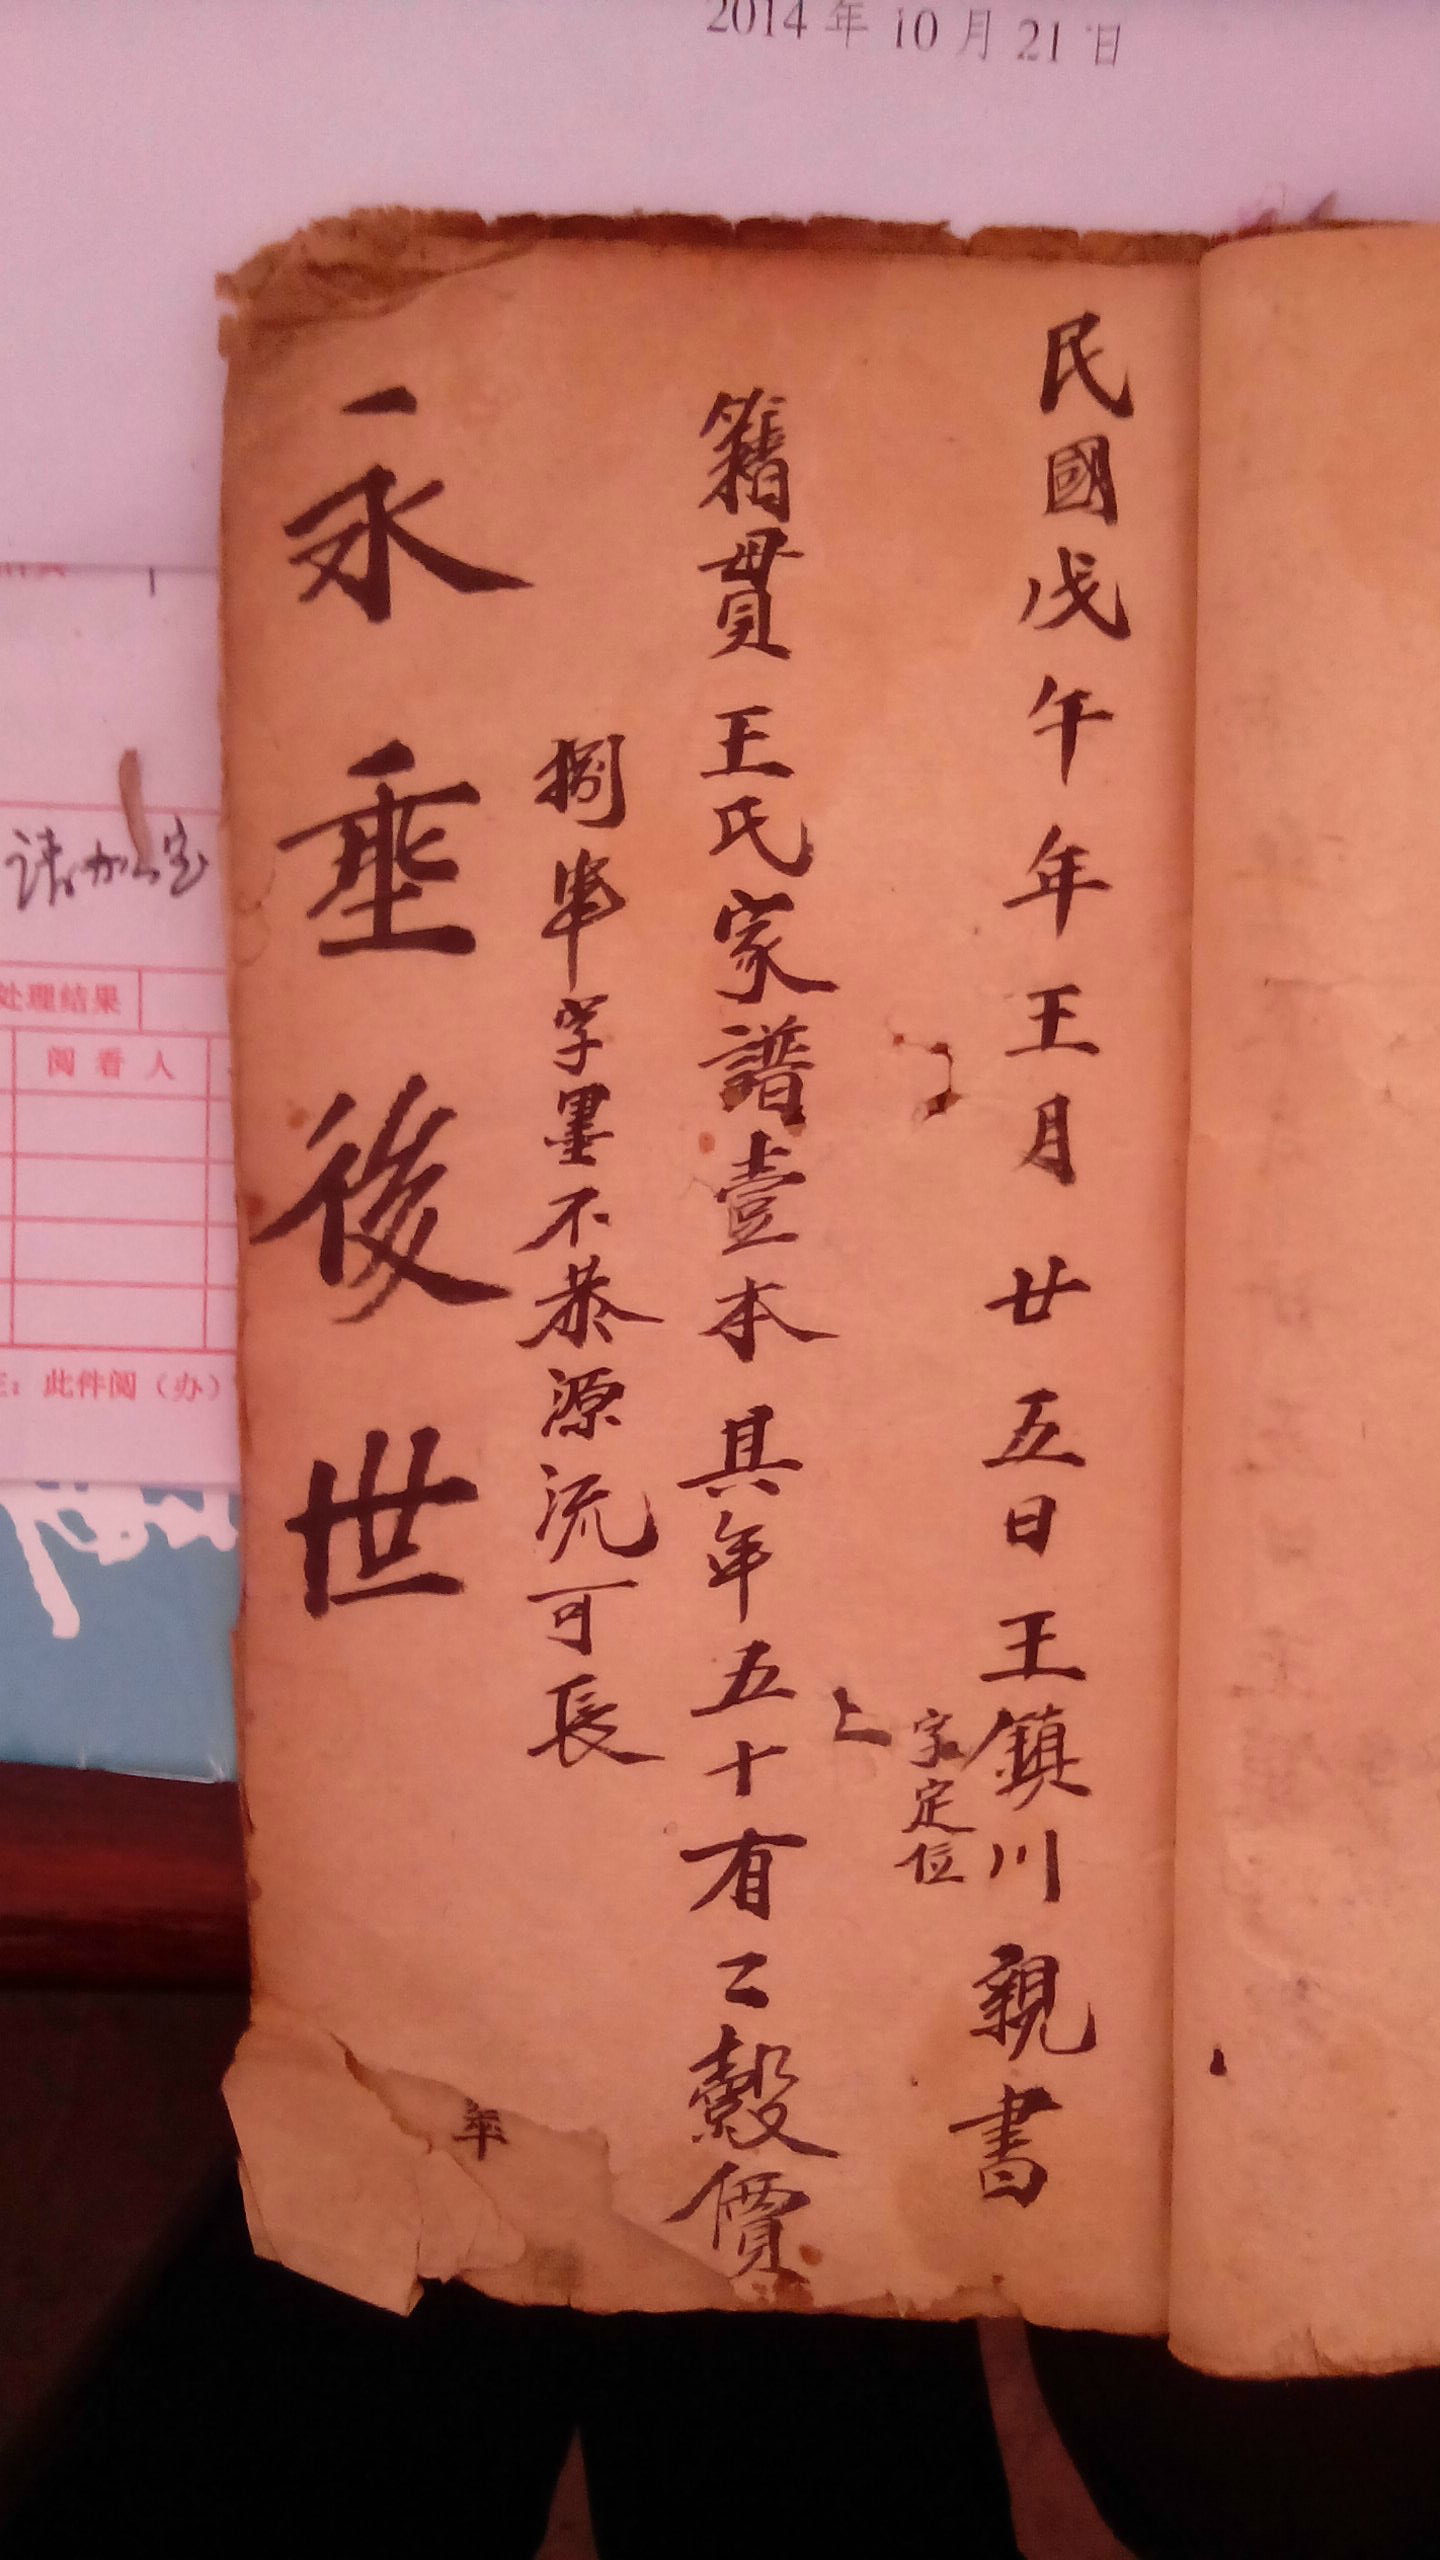 2014年10月21日
民國戊午年王月廿五日王鎮川親書
字定位
上
籍貫王氏家譜壹本其年五十有二穀價
捌串字墨不恭源流可長
永垂後世
年
请加
处理结果
阅看人
此件阅（办）